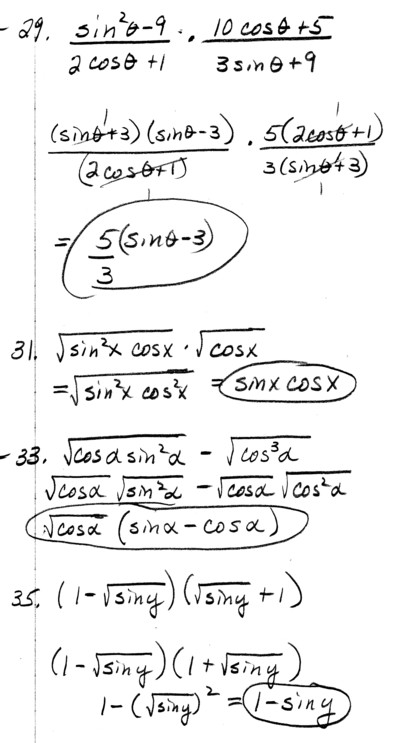 29. (sin²θ-9)/(2cosθ+1) · (10cosθ+5)/(3sinθ+9)
((sinθ+3)(sinθ-3))/((2cosθ+1)) · (5(2cosθ+1))/(3(sinθ+3))
= 5/3 (sinθ-3)
31. √(sin²x cosx) · √(cosx)
= √(sin²x cos²x) = sinx cosx
33. √(cosα sin²α) - √(cos³α)
√(cosα) √(sin²α) - √(cosα) √(cos²α)
√(cosα) (sinα - cosα)
35. (1-√(siny))(√(siny)+1)
(1-√(siny))(1+√(siny))
1-(√(siny))² = 1-siny